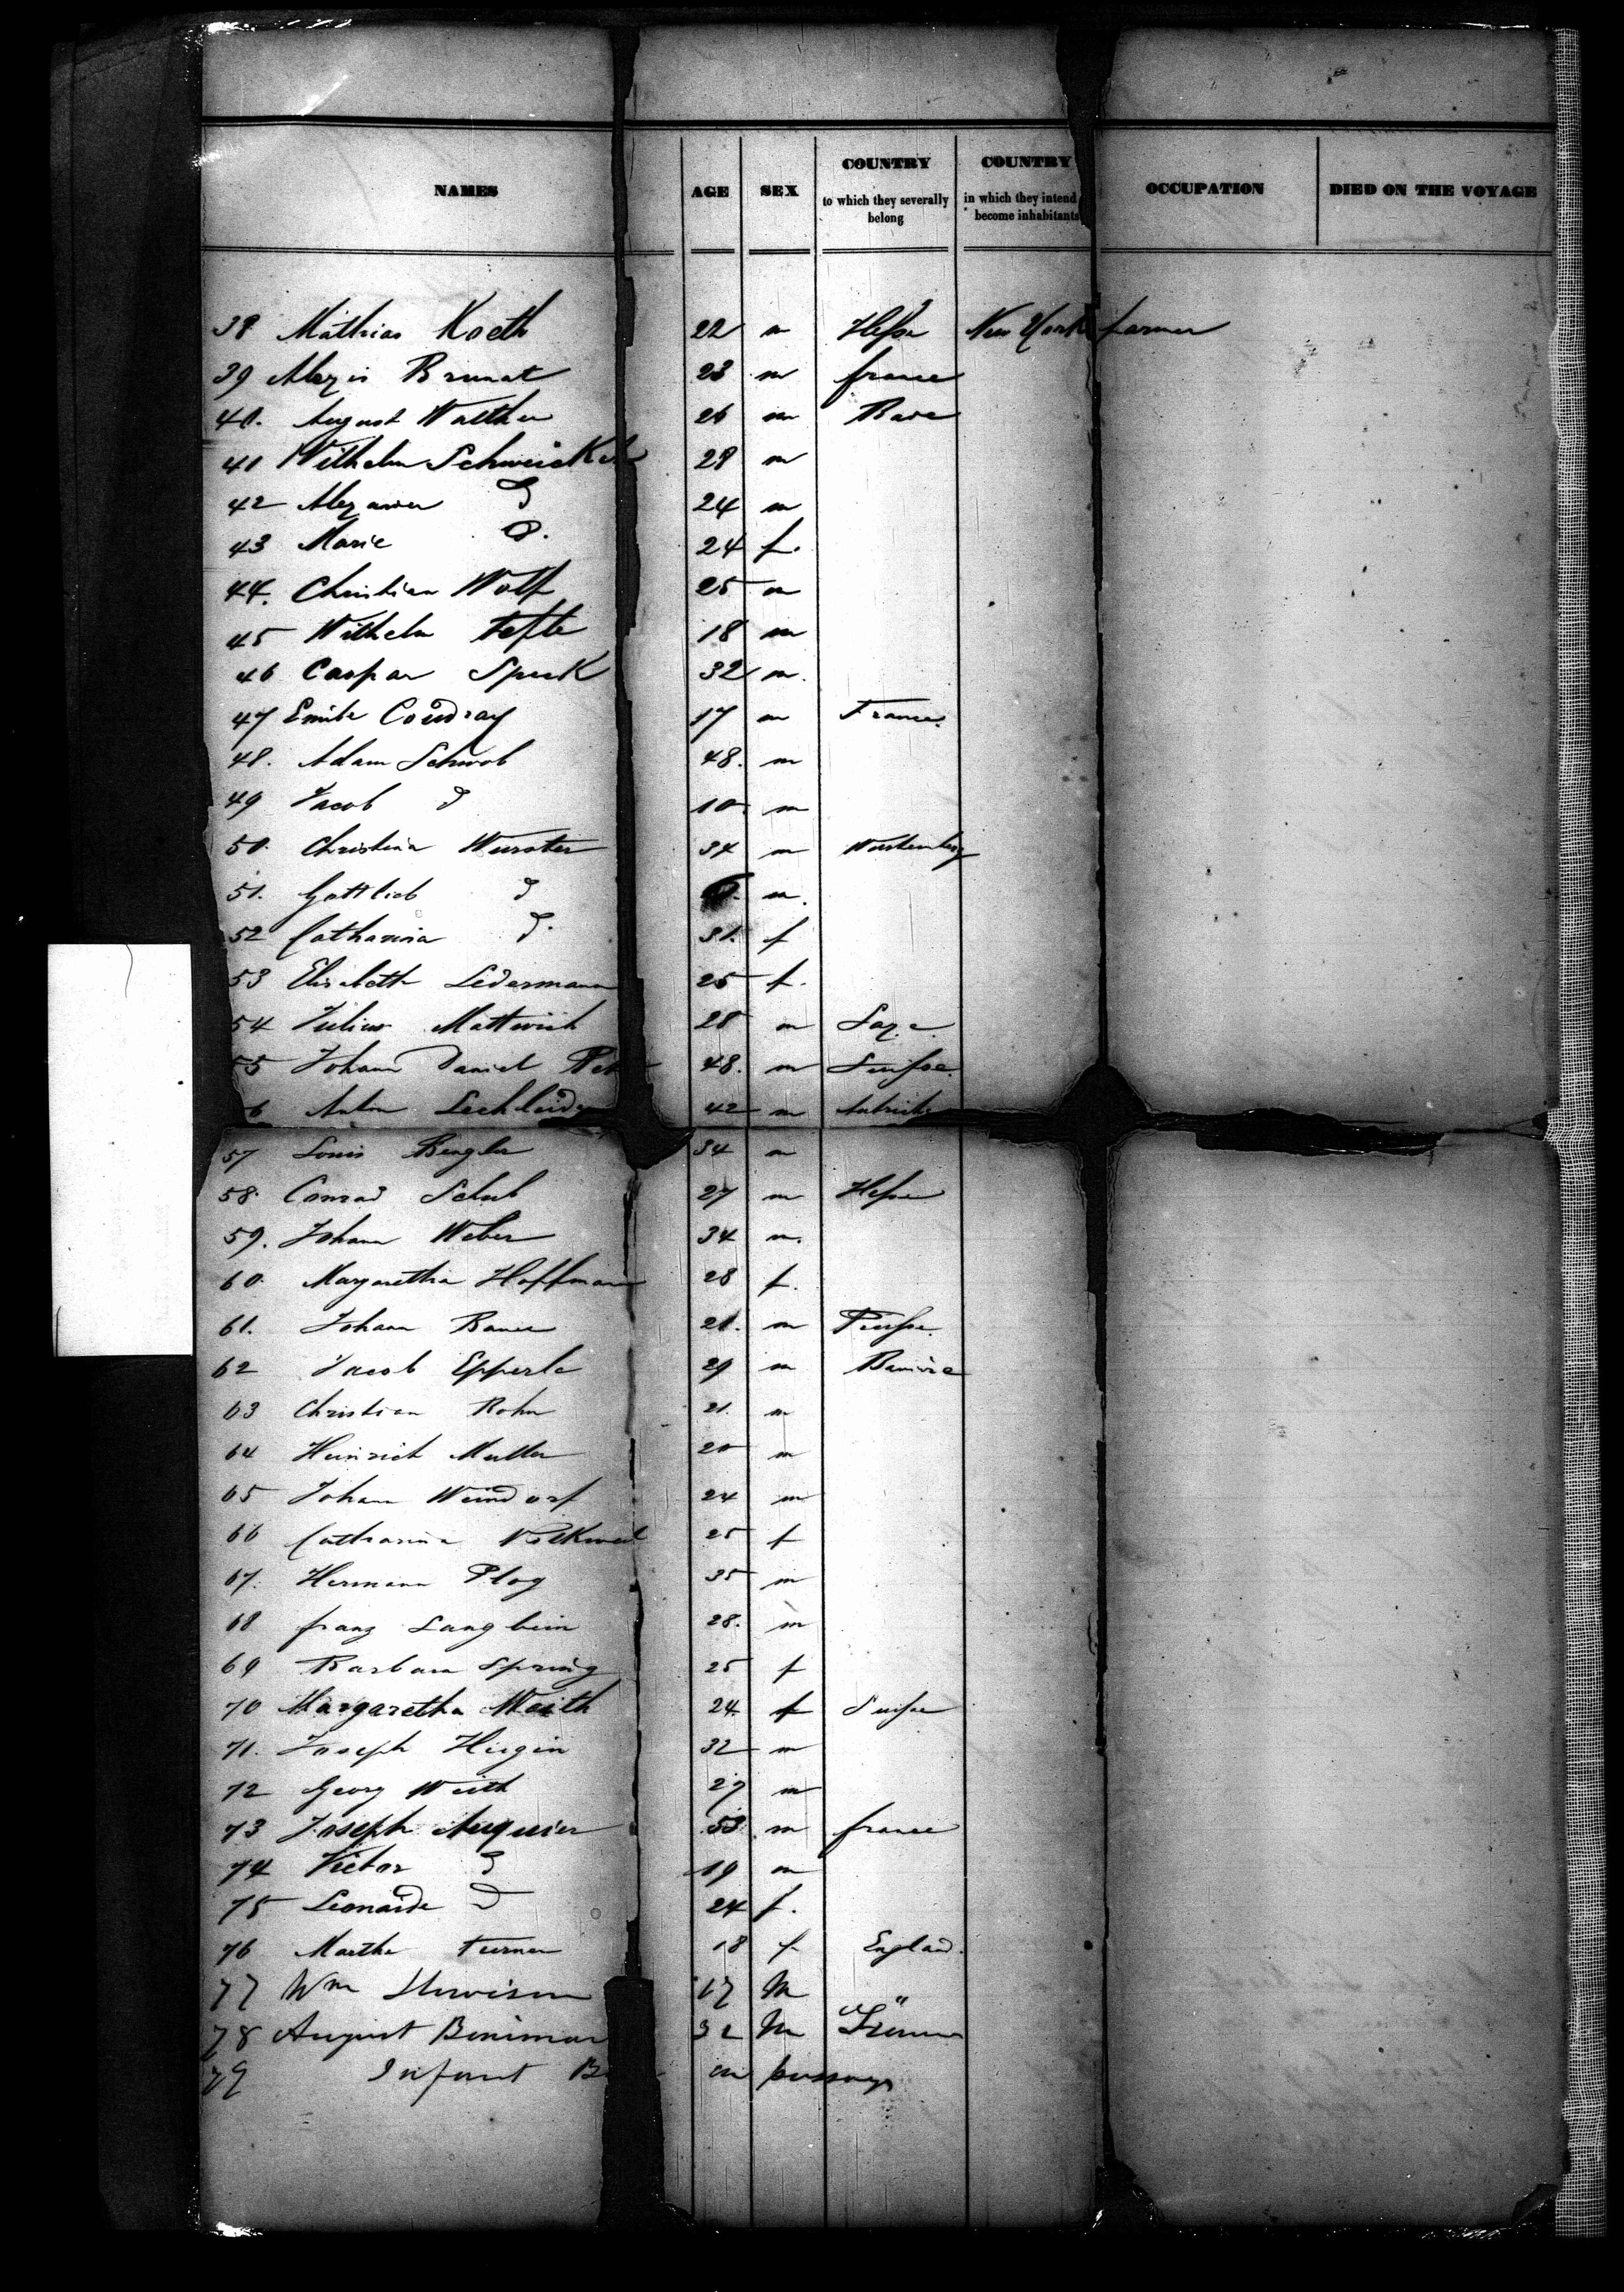 NAMES AGE SEX COUNTRY to which they severally belong COUNTRY in which they intend become inhabitants OCCUPATION DIED ON THE VOYAGE
38 Mathias Koeth 22 m Hesse New York farmer
39 Alexis Brunat 23 m france
40. August Walther 26 m Bade
41 Wilhelm 28 m
42 D 24 m
43 Marie D. 24 f.
44. Christian Wolf 25 m
45 Wilhelm 18 m
46 Caspar Speck 32 m.
47 Emile Coudray 17 m France.
48. Adam Schwob 48. m
49 Jacob D 10 m
50. Christian Wurster 34 m Wurtemberg
51. Gottlieb D m.
52 Catharina D. 31. f
53 Elisabeth Ledermann 25 f.
54 Julius 28 m Saxe
55 Johann Daniel 48. m Suisse.
6 Anton 42 m Autriche
57 Louis 34 m
58. Conrad Schub 27 m Hesse
59. Johann Weber 34 m.
60. Margaretha Hoffmann 28 f.
61. Johann 21. m Prusse.
62 Jacob Epperle 29 m Baviere
63 Christian Rohn 21. m
64 Heinrich Muller 20 m
65 Johann Weindorf 24 m
66 Catharina 25 f
67. Hermann Plog 35 m
68 franz Langbein 28. m
69 Barbara Spring 25 f
70 Margaretha 24. f Suisse
71. Joseph Hirgin 32 m
72 Georg Weith 29 m
73 Joseph Auguier 53 m france
74 Victor D 19 m
75 Leonarde D 24 f.
76 Martha Turner 18 f England.
77 Wm 17 M "
78 August 32 M
79 Infant on passage